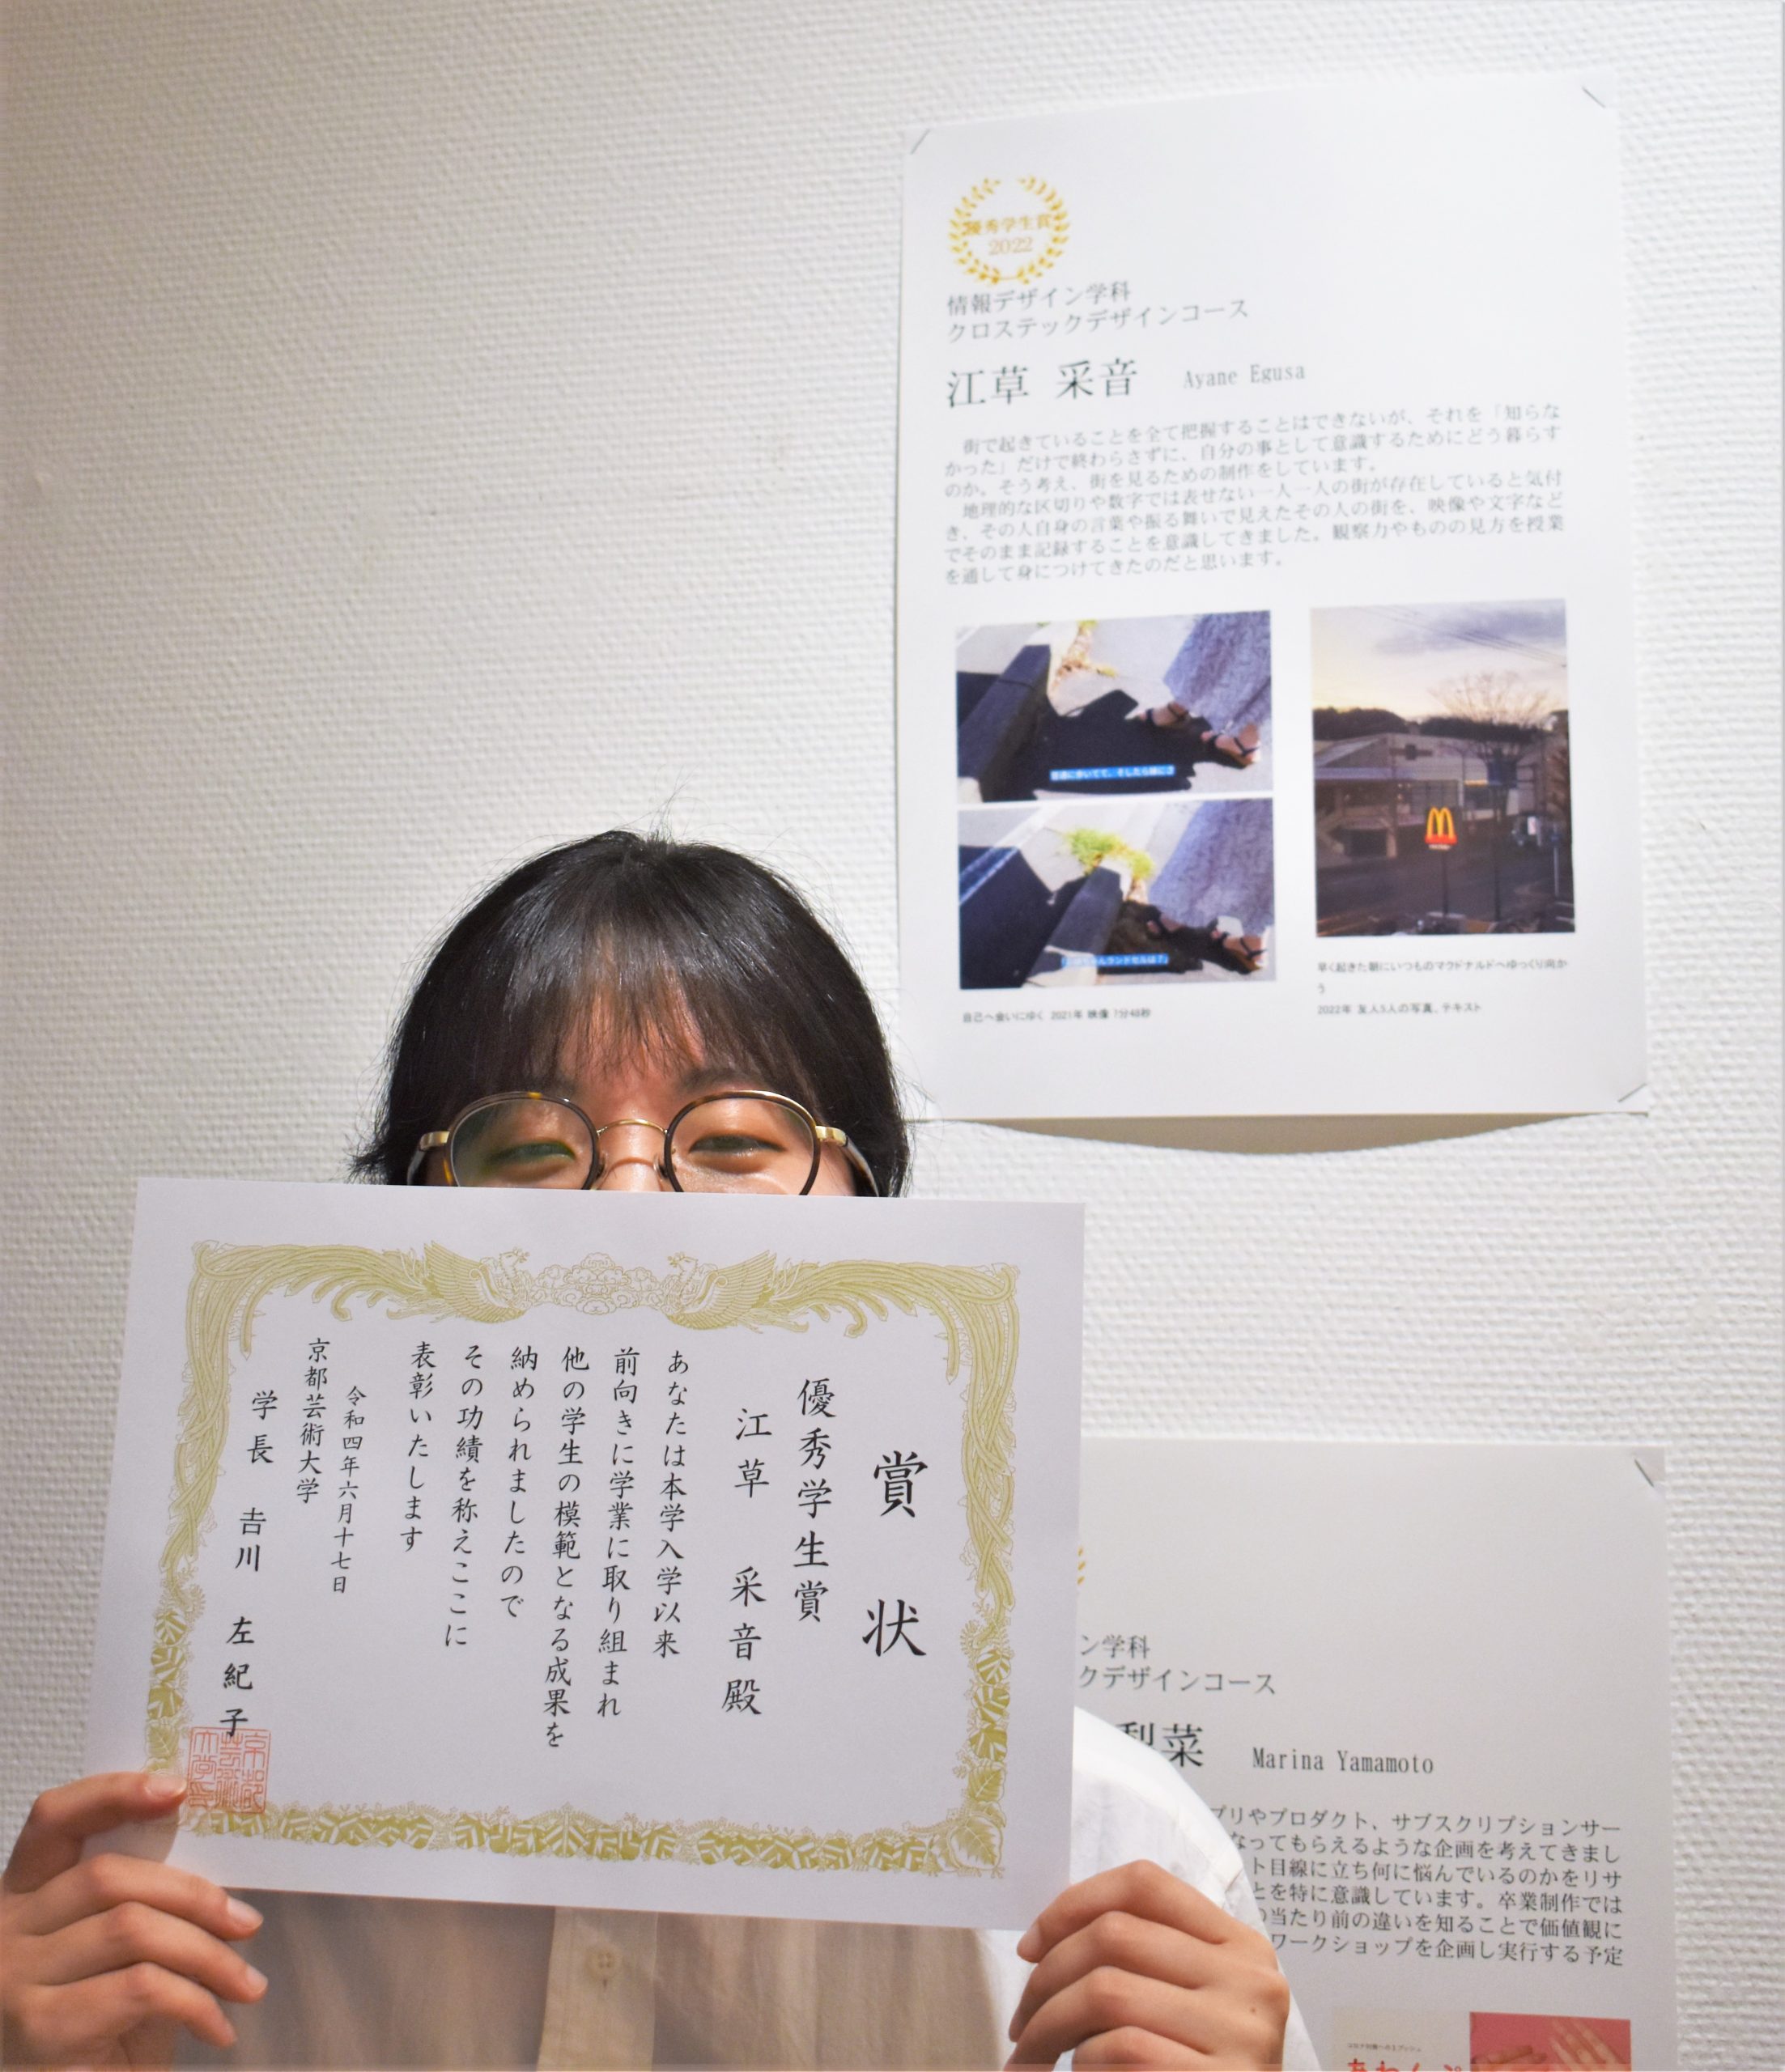 優秀学生賞
2022
情報デザイン学科
クロステックデザインコース
江草 采音 Ayane Egusa
街で起きていることを全て把握することはできないが、それを「知らな
かった」だけで終わらさずに、自分の事として意識するためにどう暮らす
のか。そう考え、街を見るための制作をしています。
地理的な区切りや数字では表せない一人一人の街が存在していると気付
き、その人自身の言葉や振る舞いで見えたその人の街を、映像や文字など
でそのまま記録することを意識してきました。観察力やものの見方を授業
を通して身につけてきたのだと思います。
自己へ会いにゆく 2021年 映像 7分48秒
早く起きた朝にいつものマクドナルドへゆっくり向か
う
2022年 友人5人の写真、テキスト
賞状
優秀学生賞
江草 采音殿
あなたは本学入学以来
前向きに学業に取り組まれ
他の学生の模範となる成果を
納められましたので
その功績を称えここに
表彰いたします
令和四年六月十七日
京都芸術大学
学長 𠮷川 左紀子
ン学科
クデザインコース
梨菜 Marina Yamamoto
プリやプロダクト、サブスクリプションサー
なってもらえるような企画を考えてきまし
ト目線に立ち何に悩んでいるのかをリサ
とを特に意識しています。卒業制作では
の当たり前の違いを知ることで価値観に
ワークショップを企画し実行する予定